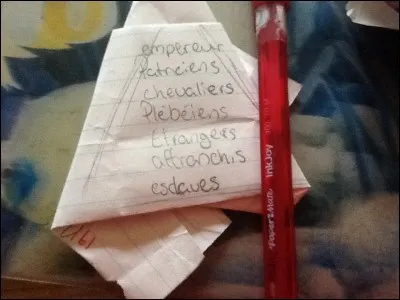 empereur
Patriciens
chevaliers
Plébéiens
Étrangers
affranchis
esclaves
PaperMate InkJoy